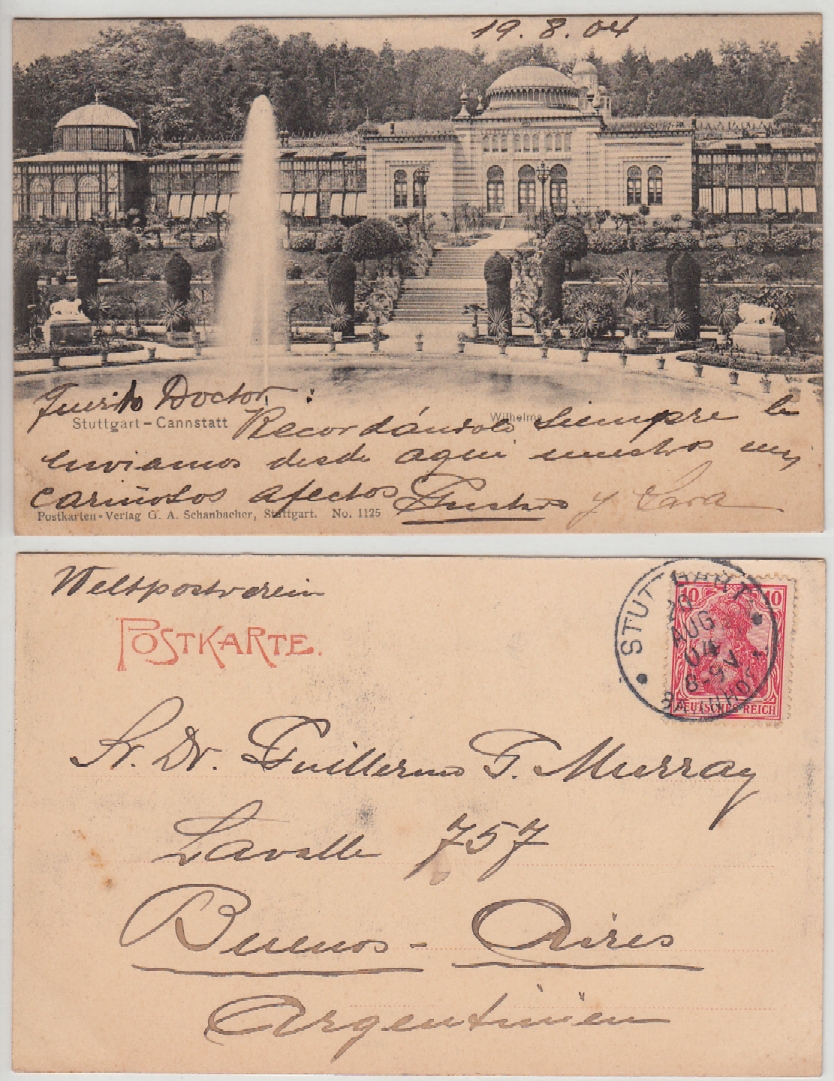 19.8.04
Doctor
Stuttgart-Cannstatt
Wilhelma
Recordándolo siempre le
enviamos desde aqui nuestros muy
cariñosos afectos Gustavo y Sara
Postkarten-Verlag G. A. Schanbacher, Stuttgart. No. 1125
Weltpostverein
POSTKARTE.
STUTTGART
AUG
04
8-9V
BAHNHOF
10 10
DEUTSCHES REICH
Sr. Dr. Guillermo T. Murray
Lavalle 757
Buenos-Aires
Argentinien